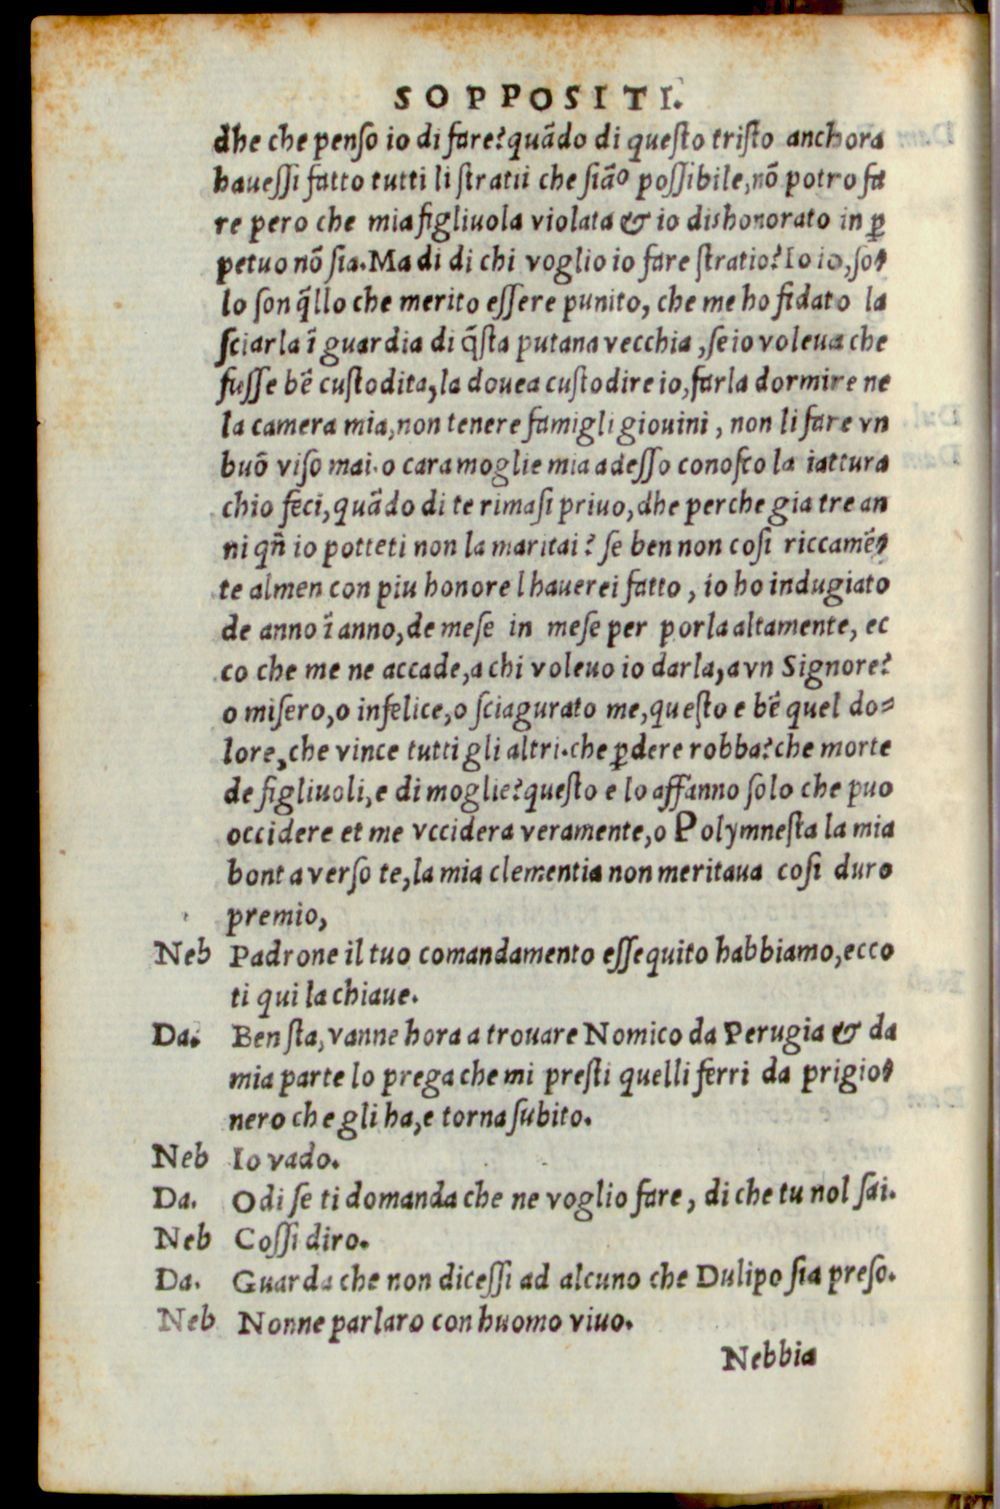 SOPPOSITI.
dhe che penso io di fare? quãdo di questo tristo anchora
hauessi fatto tutti li stratii che siãо possibile, nõ potro fa
re pero che mia figliuola violata & io dishonorato in ꝑ
petuo nõ sia. Ma di di chi voglio io fare stratio? Io io, so-
lo son q̃llo che merito essere punito, che me ho fidato la
sciarla ĩ guardia di q̃sta putana vecchia, se io voleua che
fusse bẽ custodita, la douea custodire io, farla dormire ne
la camera mia, non tenere famigli giouini, non li fare vn
buõ viso mai. o cara moglie mia adesso conosco la iattura
chio feci, quãdo di te rimasi priuo, dhe perche gia tre an
ni qñ io potteti non la maritai? se ben non cosi riccamẽ-
te almen con piu honore l hauerei fatto, io ho indugiato
de anno ĩ anno, de mese in mese per porla altamente, ec
co che me ne accade, a chi voleuo io darla, a vn Signore?
o misero, o infelice, o sciagurato me, questo e bẽ quel do-
lore, che vince tutti gli altri. che ꝑdere robba? che morte
de figliuoli, e di moglie? questo e lo affanno solo che puo
occidere et me vccidera veramente, o Polymnesta la mia
bonta verso te, la mia clementia non meritaua cosi duro
premio,
Neb Padrone il tuo comandamento essequito habbiamo, ecco
ti qui la chiaue.
Da. Ben sta, vanne hora a trouare Nomico da Perugia & da
mia parte lo prega che mi presti quelli ferri da prigio-
nero che gli ha, e torna subito.
Neb Io vado.
Da. Odi se ti domanda che ne voglio fare, di che tu nol sai.
Neb Cossi diro.
Da. Guarda che non dicessi ad alcuno che Dulipo sia preso.
Neb Nonne parlaro con huomo viuo.
Nebbia